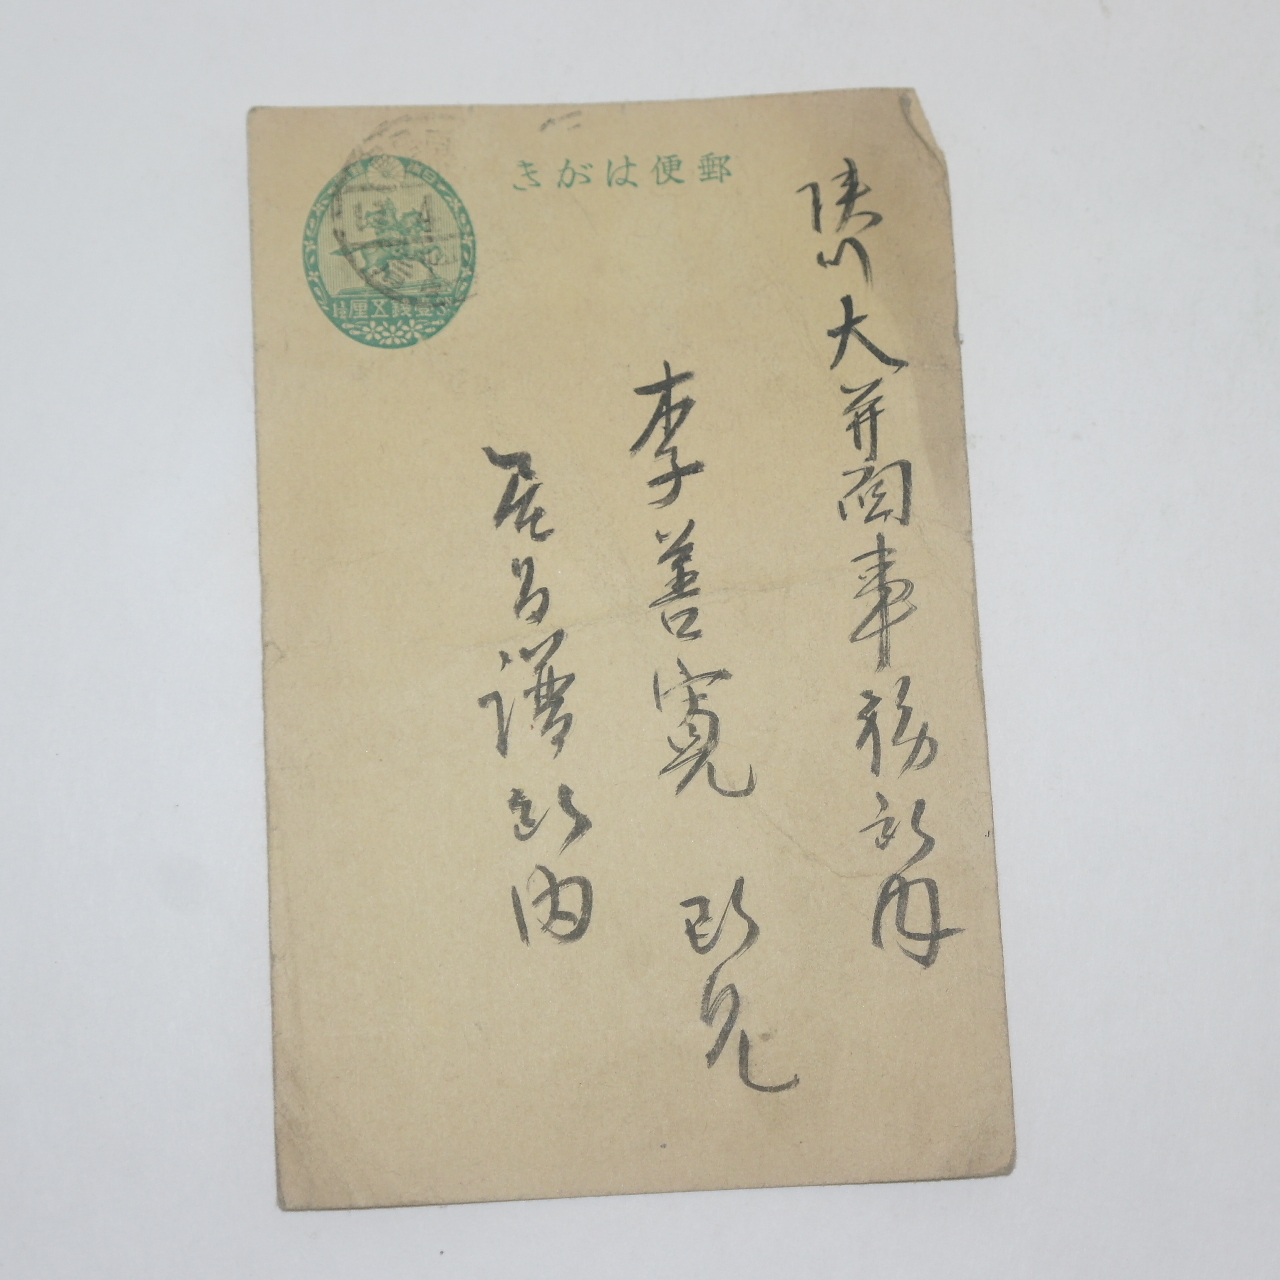 郵便はがき
壹錢五厘
陜川大幷面事務所內
李善寬 殿
居昌譜所內